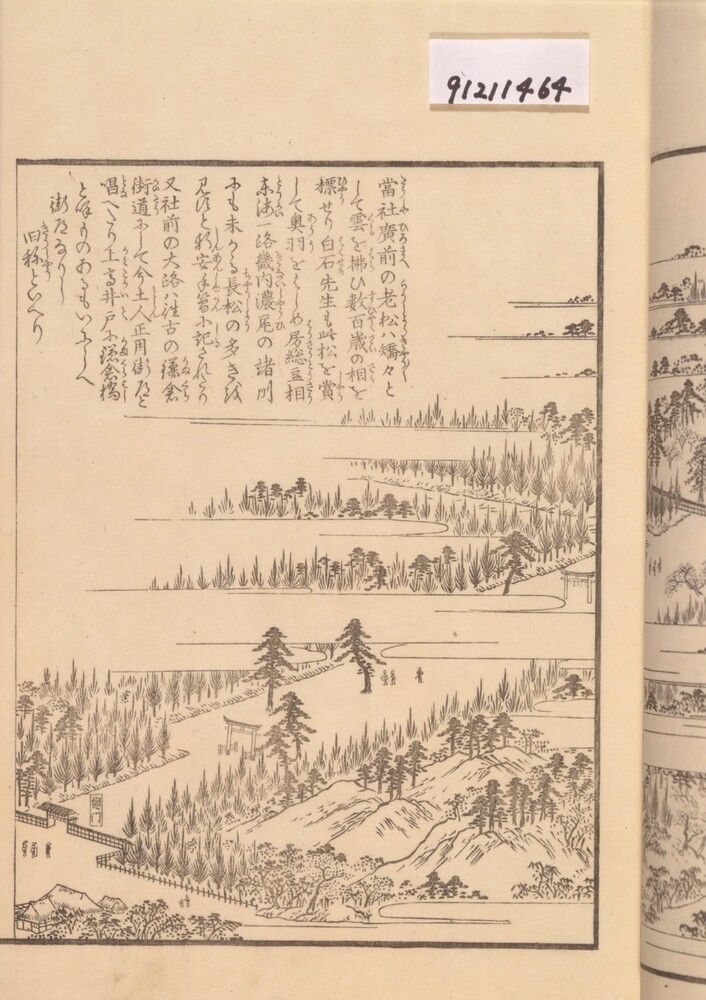 91211464
當社廣前の老松ハ矯々と
して雲を拂ひ数百歳の相を
標せり白石先生も此松を賞
して奥羽をはしめ房総豆相
東海一路畿内濃尾の諸州
にも未かゝる長松の多きを
見すと新安手簡に記されたり
又社前の大路ハ往古の鎌倉
街道にして今土人正用街道と
唱へたり上高井戸に鎌倉橋
と呼ものあるもいにしへ
街道なりし
旧称といへり
総門